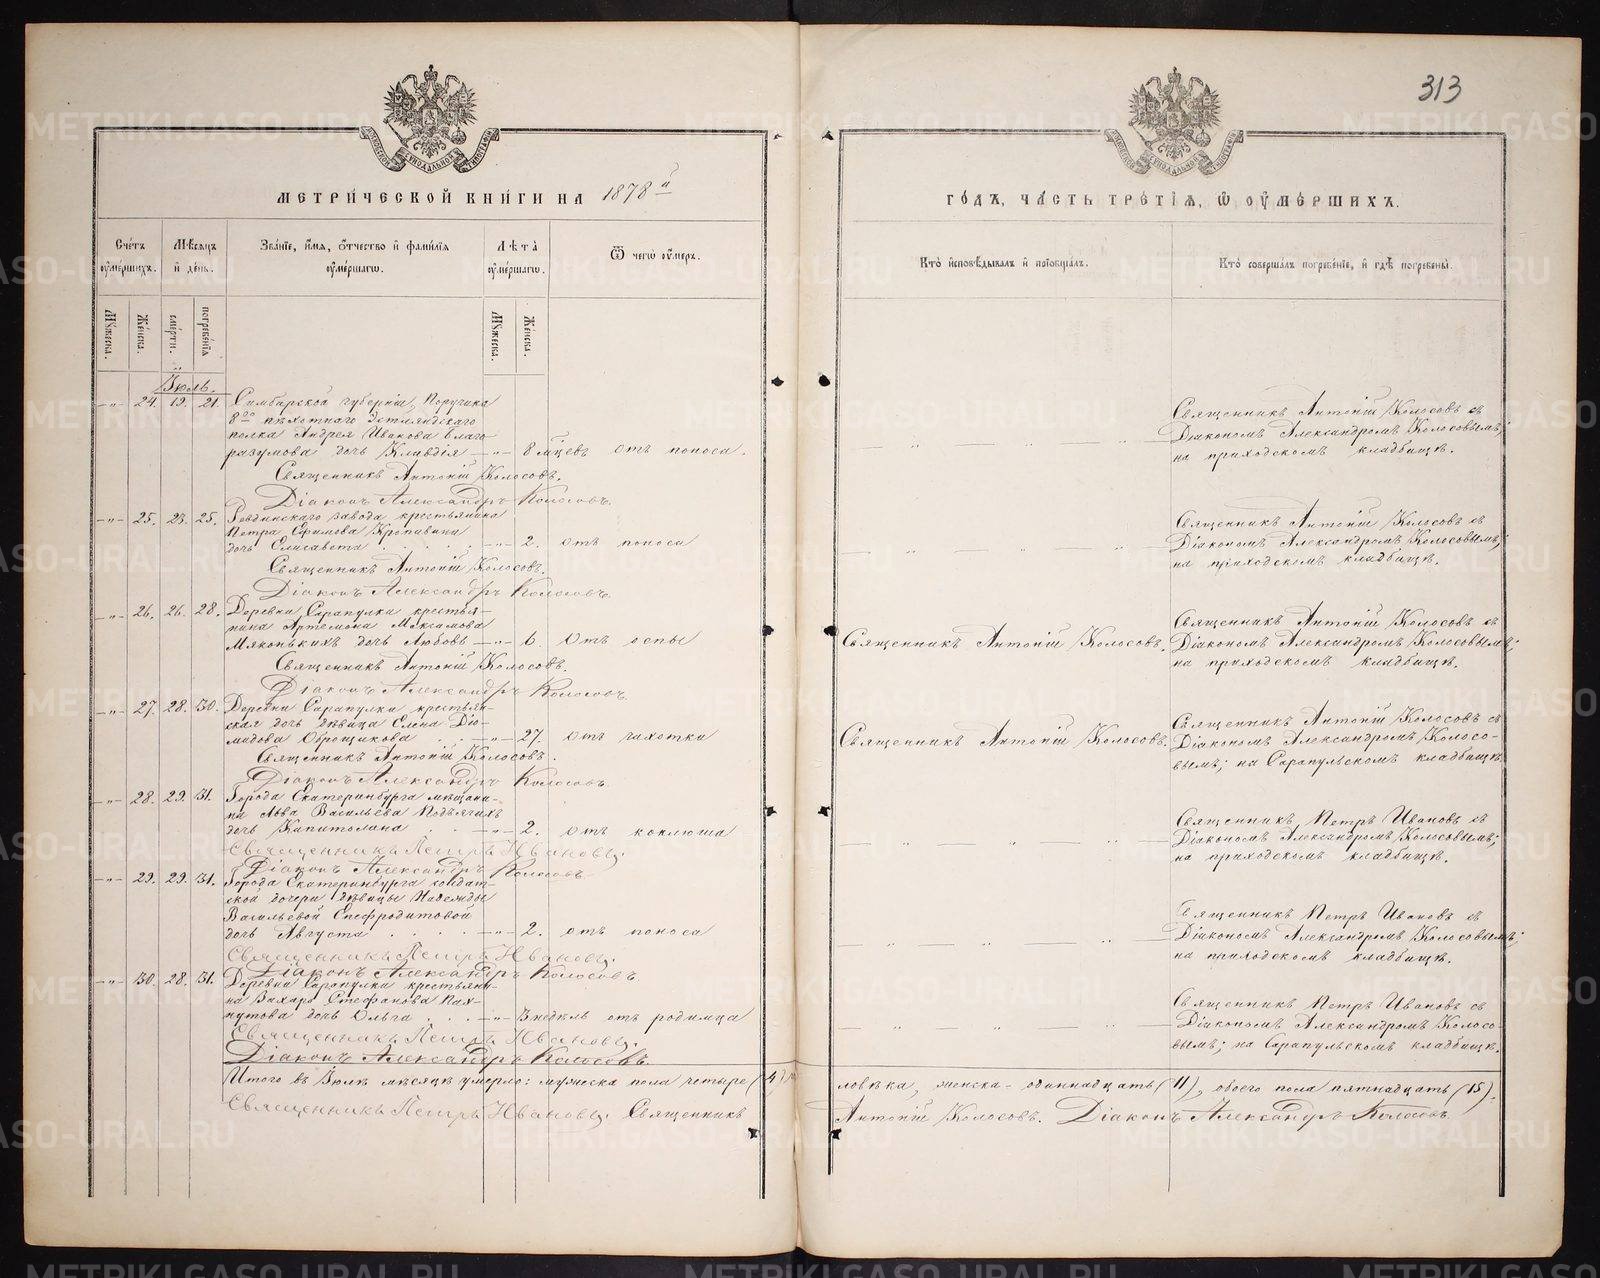 313
МЕТРИЧЕСКОЙ КНИГИ НА 1878й
ГОДЪ, ЧАСТЬ ТРЕТІЯ, Ѡ ОУМЕРШИХЪ.
Счетъ оумершихъ.
Мѣсяцъ и день.
Званіе, имя, отчество и фамилія оумершагѡ.
Лѣта оумершагѡ.
Ѿ чегѡ оумеръ.
Кто исповѣдывалъ и пріобщалъ.
Кто совершалъ погребеніе, и гдѣ погребены.
Мужеска.
Женска.
смерти.
погребенія
Мужеска.
Женска.
Іюль.
-"- 24. 19. 21. Симбирской губерніи, Поручика
8го пѣхотнаго Эстляндскаго
полка Андрея Иванова Благо-
разумова дочь Клавдія -"- 8 мѣцевъ отъ поноса.
Священникъ Антоній Колосовъ съ
Діакономъ Александромъ Колосовымъ;
на приходскомъ кладбищѣ.
Священникъ Антоній Колосовъ.
Діаконъ Александръ Колосовъ.
-"- 25. 23. 25. Ревдинскаго завода крестьянина
Петра Ефимова Кропавина
дочь Елисавета -"- 2. отъ поноса
Священникъ Антоній Колосовъ съ
Діакономъ Александромъ Колосовымъ;
на приходскомъ кладбищѣ.
Священникъ Антоній Колосовъ.
Діаконъ Александръ Колосовъ.
-"- 26. 26. 28. Деревни Сарапулки крестья-
нина Артемона Максимова
Мяконькихъ дочь Любовь -"- 6. Отъ оспы
Священникъ Антоній Колосовъ.
Священникъ Антоній Колосовъ съ
Діакономъ Александромъ Колосовымъ;
на приходскомъ кладбищѣ.
Священникъ Антоній Колосовъ.
Діаконъ Александръ Колосовъ.
-"- 27. 28. 30. Деревни Сарапулки крестьян-
ская дочь дѣвица Елена Діо-
мидова Оброщикова -"- 27. отъ чахотки
Священникъ Антоній Колосовъ.
Священникъ Антоній Колосовъ съ
Діакономъ Александромъ Колосо-
вымъ; на Сарапульскомъ кладбищѣ.
Священникъ Антоній Колосовъ.
Діаконъ Александръ Колосовъ.
-"- 28. 29. 31. Города Екатеринбурга мѣщани-
на Льва Васильева Подъячихъ
дочь Капитолина -"- 2. отъ коклюша
Священникъ Петръ Ивановъ съ
Діакономъ Александромъ Колосовымъ;
на приходскомъ кладбищѣ.
Священникъ Петръ Ивановъ.
Діаконъ Александръ Колосовъ
-"- 29. 29. 31. Города Екатеринбурга солдат-
ской дочери дѣвицы Надежды
Васильевой Епафродитовой
дочь Августа -"- 2. отъ поноса
Священникъ Петръ Ивановъ съ
Діакономъ Александромъ Колосовымъ;
на приходскомъ кладбищѣ.
Священникъ Петръ Ивановъ.
Діаконъ Александръ Колосовъ
-"- 30. 28. 31. Деревни Сарапулки крестьяни-
на Захара Стефанова Пах-
нутова дочь Ольга -"- 3 недѣль отъ родимца
Священникъ Петръ Ивановъ съ
Діакономъ Александромъ Колосо-
вымъ; на Сарапульскомъ кладбищѣ.
Священникъ Петръ Ивановъ.
Діаконъ Александръ Колосовъ.
Итого въ Іюлѣ мѣсяцѣ умерло: мужеска пола четыре (4) че-
ловѣка, женска - одиннадцать (11), обоего пола пятнадцать (15).
Священникъ Петръ Ивановъ. Священникъ
Антоній Колосовъ. Діаконъ Александръ Колосовъ.
METRIKI.GASO-URAL.RU